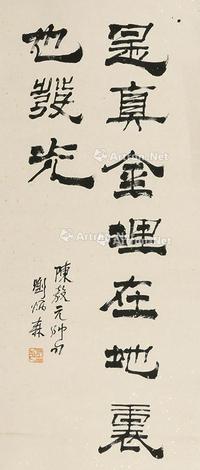 是真金埋在地裏
也發光
陳毅元帥句
劉炳森
Artron.Net